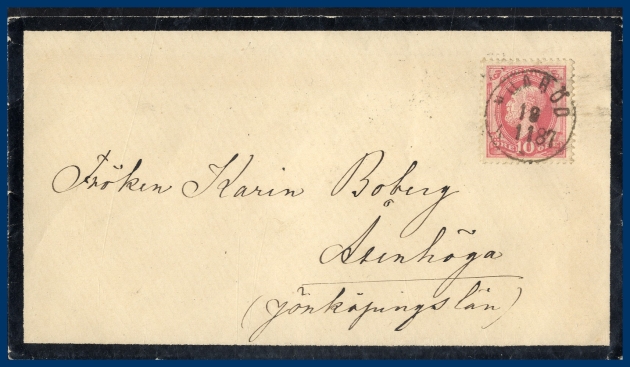 18
1187
10
Fröken Karin Boberg
Åsenhöga
(Jönköpingslän)